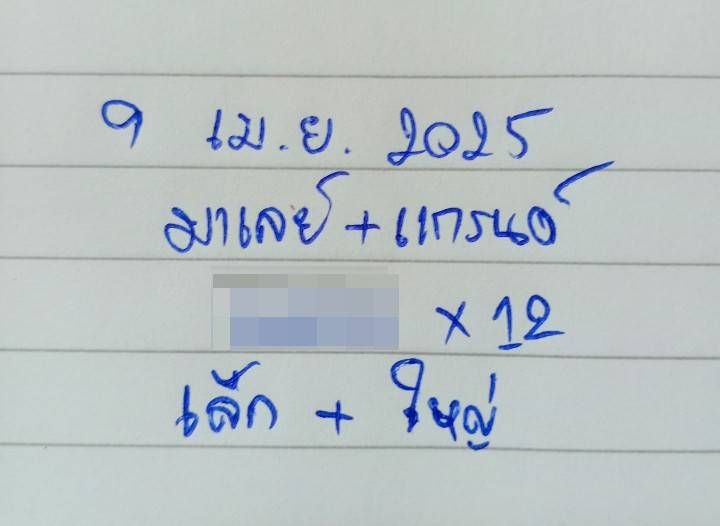 9 เม.ย. 2025
มาเลย์ + แกรนด์
x 12
เล็ก + ใหญ่